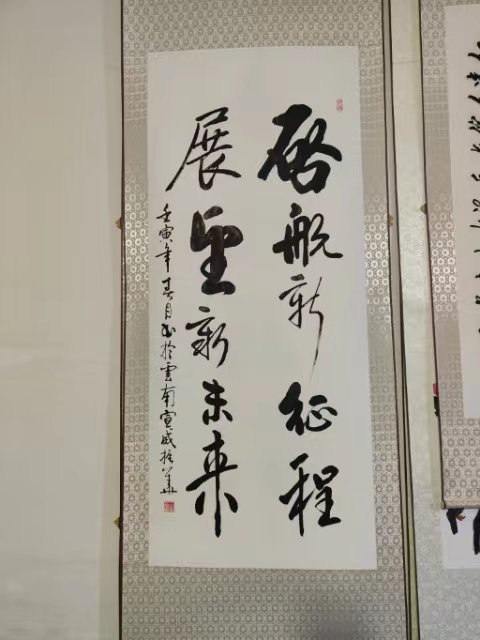 启航新征程
展望新未来
壬寅年十月书於雲南宣威